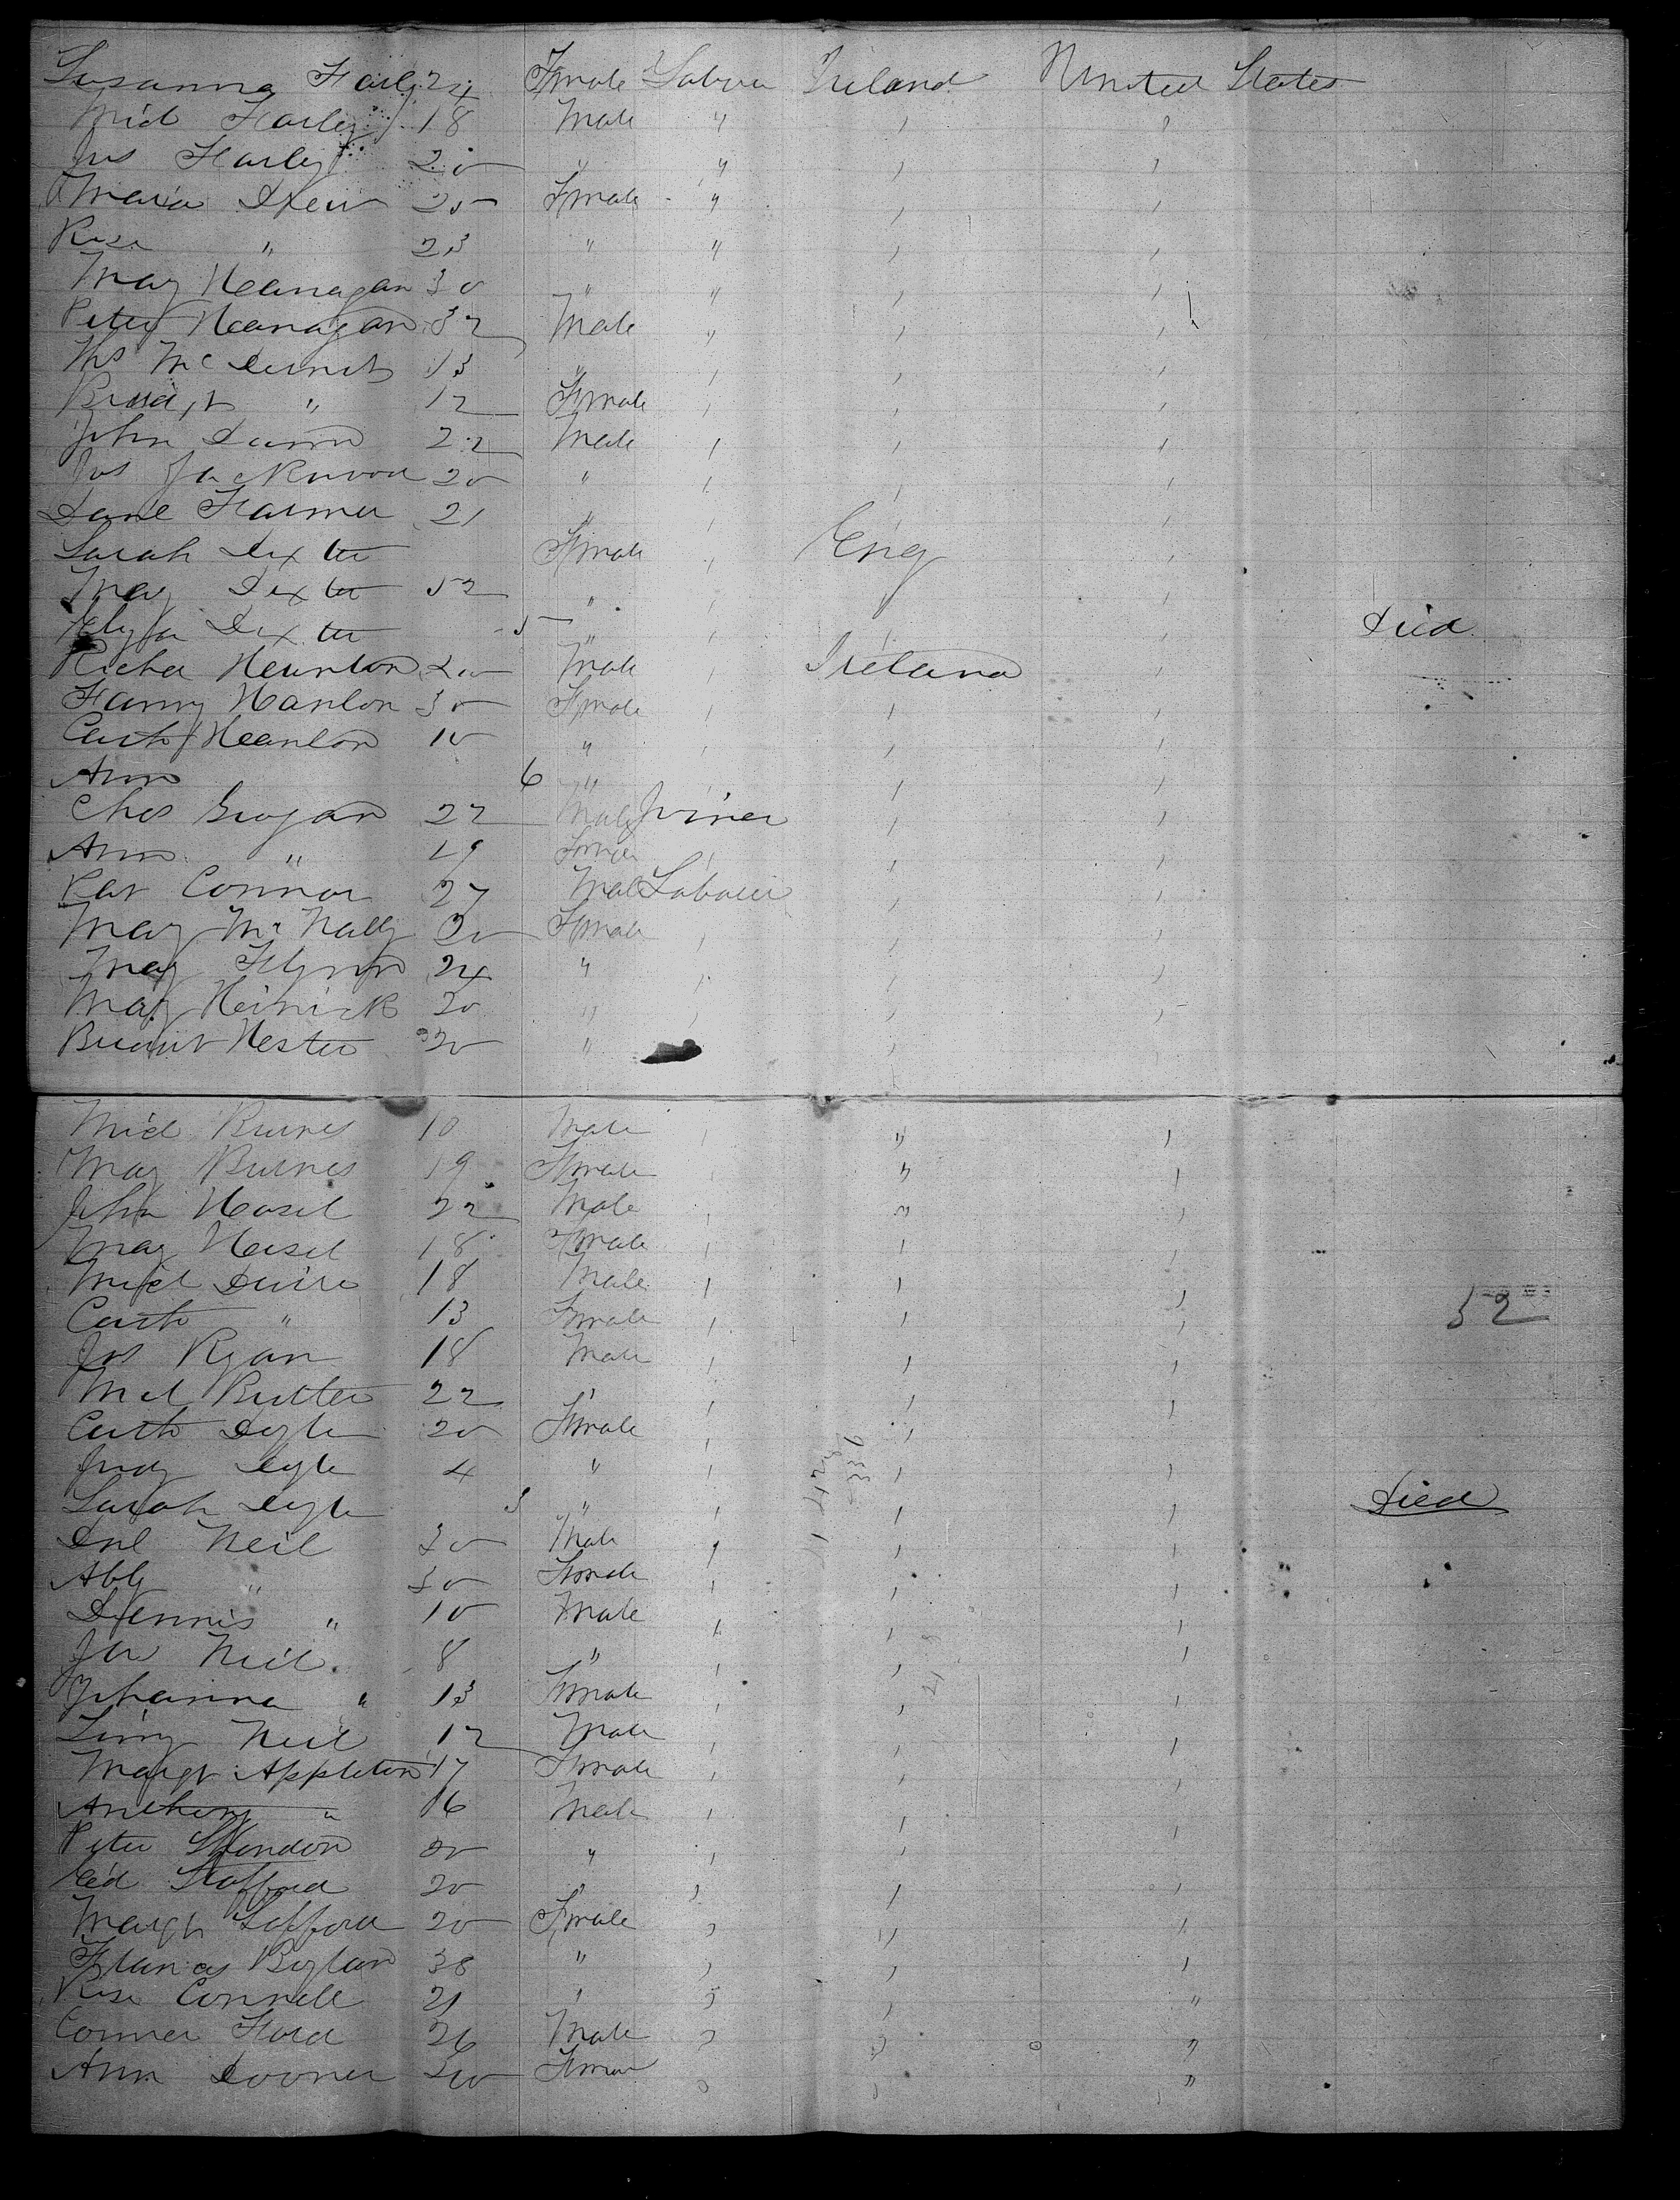 Susanna Harly 24 Female Labour Ireland United States
Mich Harley 18 Male " " "
Jas Harley 20 " " " "
Maria Drew 25 Female " " "
Rose " 23 " " " "
Mary Hanagan 30 " " " "
Peter Hanagan 32 Male " " "
Ths McDermot 13 " " " "
Bridgt " 12 Female " " "
John Dunn 22 Male " " "
Jos Jackwood 20 " " " "
Danl Farmer 21 " " " "
Sarah Dexter Female " Eng "
Mary Dexter 52 " " "
Dexter 5 " " " Died
Richd Hanlon Male " Ireland "
Fanny Hanlon 30 Female " " "
Cath Hanlon 10 " " " "
Ann 6 " " "
Chas Grogan 22 Male Joiner " "
Ann " 19 Female " " "
Pat Connor 27 Male Labour " "
Mary McNally 30 Female " " "
Mary Flynn 24 " " " "
Mary 20 " " " "
Hester 20 " " "
Mich Burnes 10 Male " " "
Mary Burnes 19 Female " " "
John 22 Male " " "
Mary 18 Female " " "
Mich 18 Male " " "
Cath " 13 Female " " "
52
Jas Ryan 18 Male " " "
Butler 22 " " " "
Cath Doyle 20 Female " " "
Judy Doyle 4 " " " "
Sarah Doyle 3 " " " " Died
Dnl Neil Male " " "
Abby " 30 Female " " "
Dennis " 10 Male " " "
Neil 8 " " " "
Johanna " 13 Female " " "
Neil 12 Male " " "
Margt Appleton 17 Female " " "
Anthony " 16 Male " " "
Peter 20 " " " "
Ed Stafford 20 " " " "
Margt 20 Female " " "
Frances Boylan 38 " " " "
Rose Connell 21 " " " "
Conner Ford 26 Male " " "
Ann Dooner Female " " "